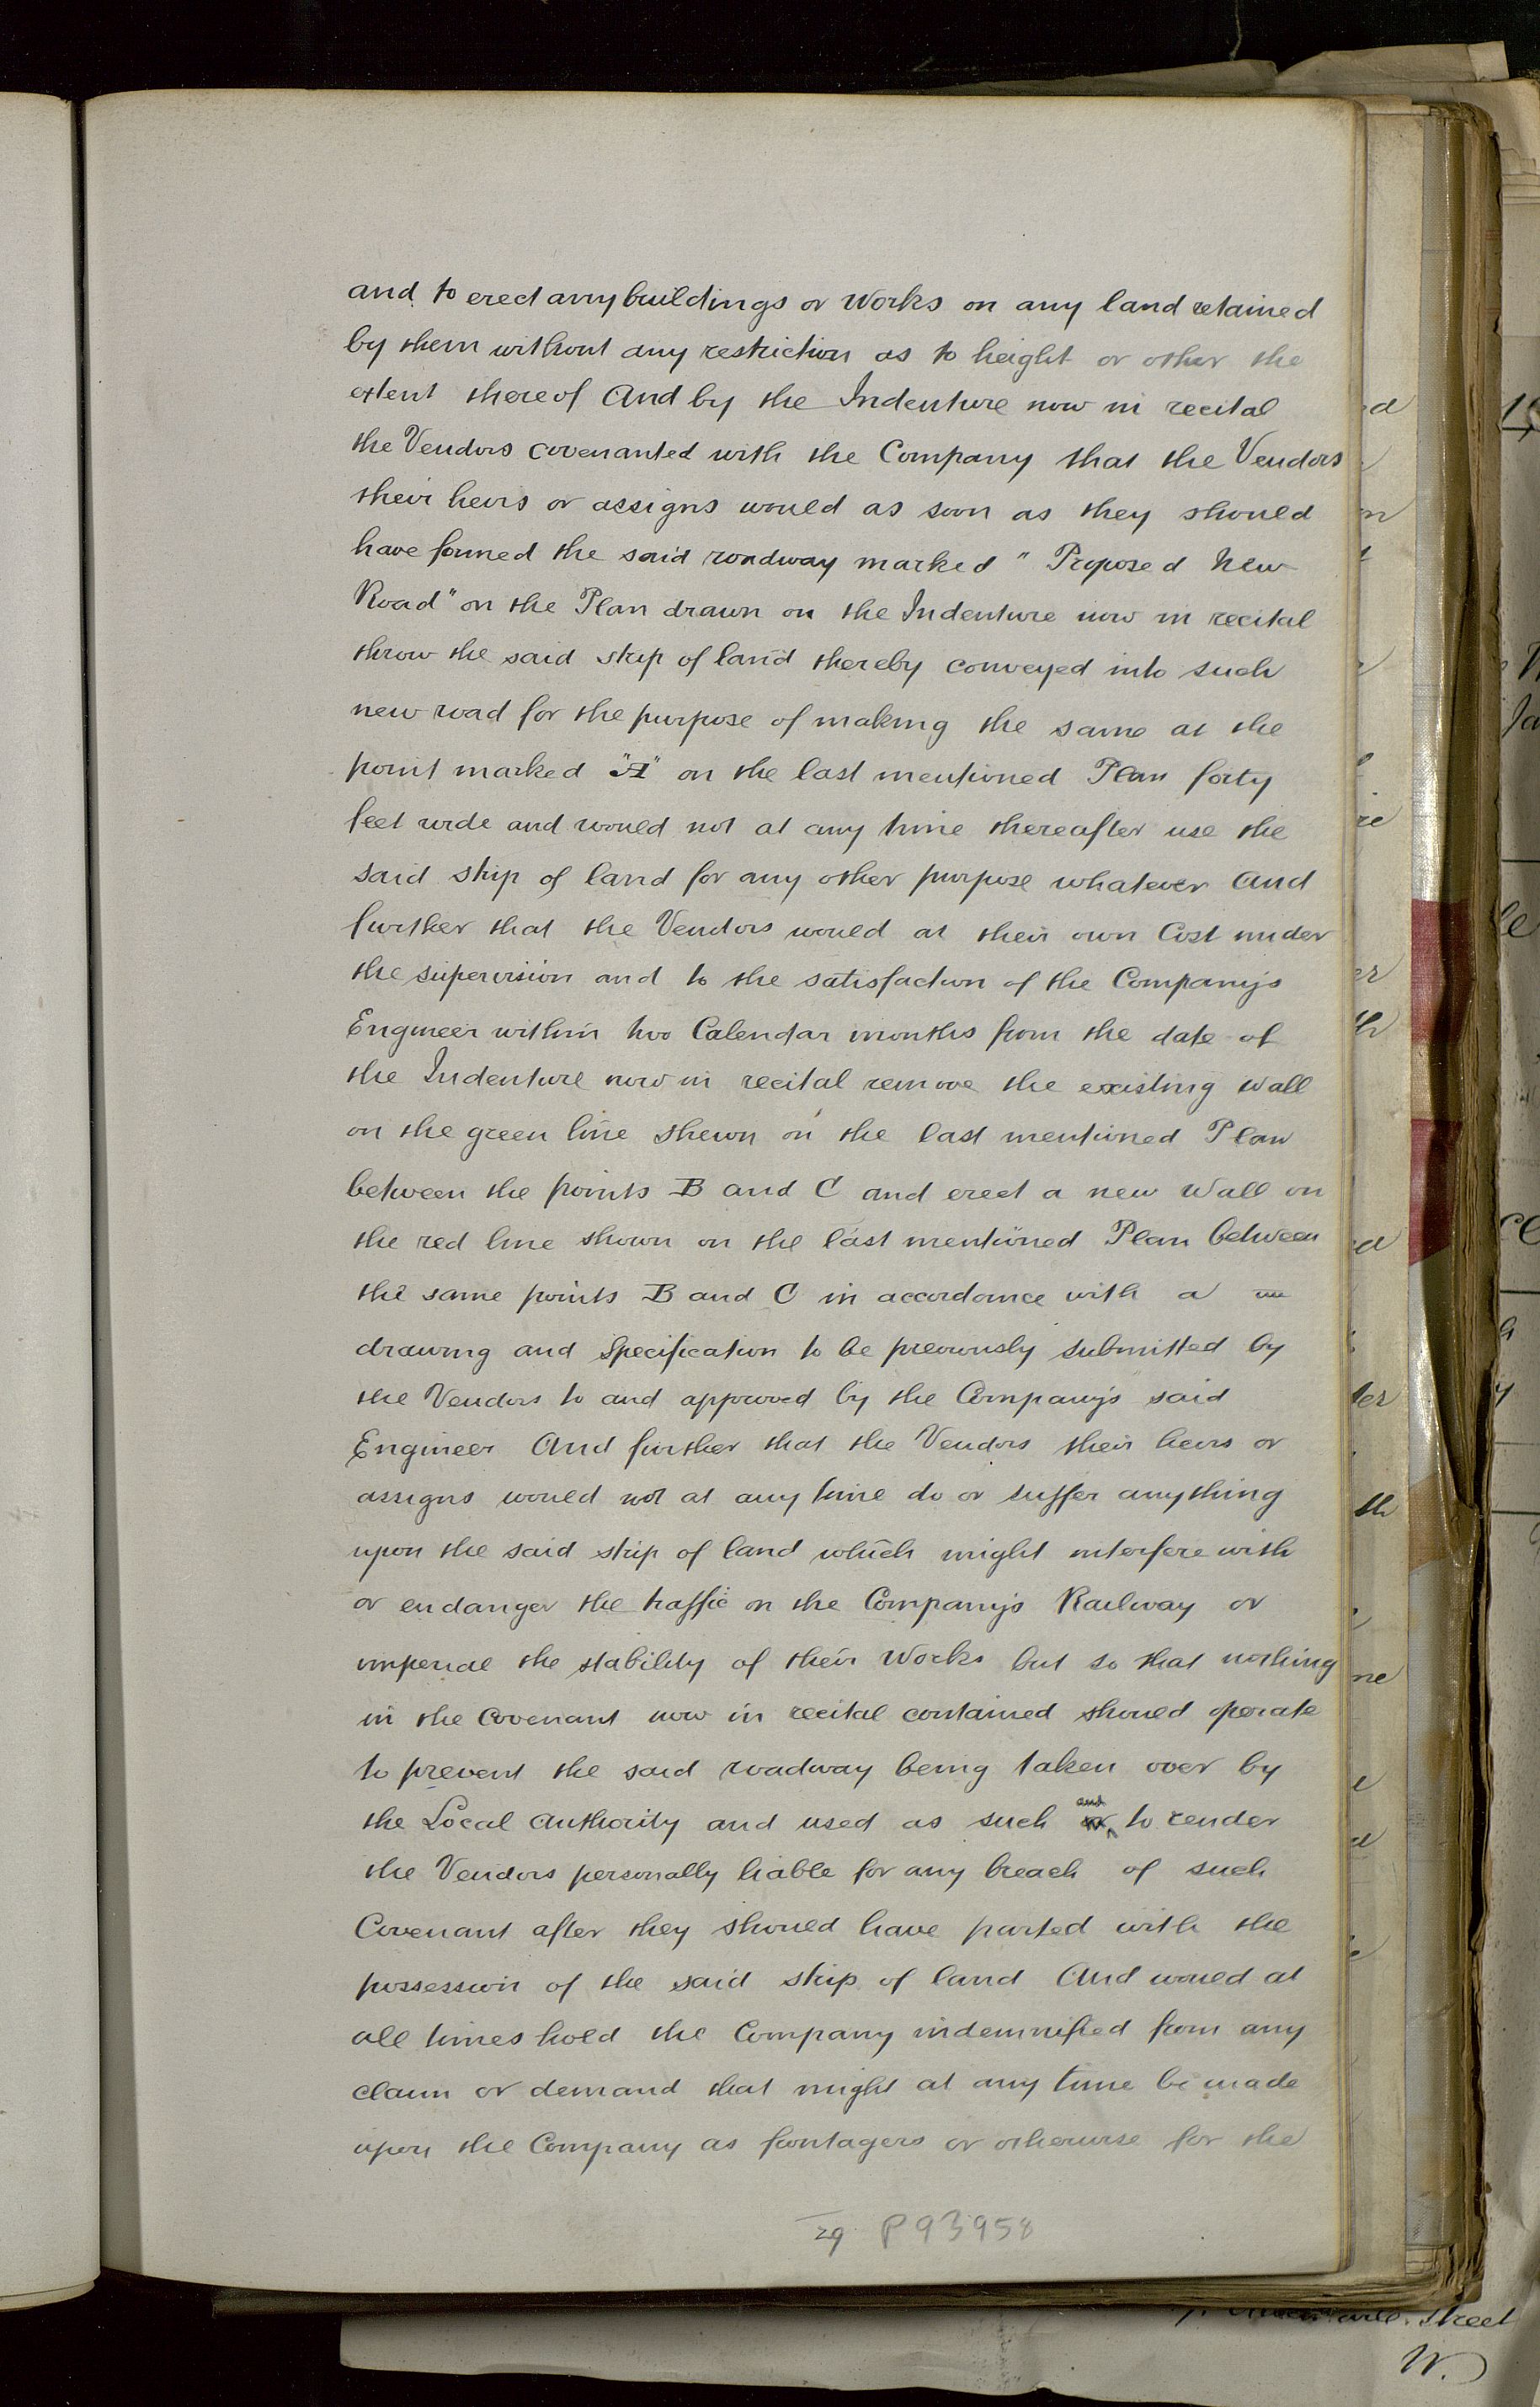 and to erect any buildings or Works on any land retained
by them without any restriction as to height or other the
extent thereof And by the Indenture now in recital
the Vendors covenanted with the Company that the Vendors
their heirs or assigns would as soon as they should
have formed the said roadway marked "Proposed New
Road" on the Plan drawn on the Indenture now in recital
throw the said strip of land thereby conveyed into such
new road for the purpose of making the same at the
point marked "A" on the last mentioned Plan forty
feet wide and would not at any time thereafter use the
said strip of land for any other purpose whatever And
further that the Vendors would at their own Cost under
the supervision and to the satisfaction of the Company's
Engineer within two Calendar months from the date of
the Indenture now in recital remove the existing Wall
on the green line shewn on the last mentioned Plan
between the points B and C and erect a new Wall on
the red line shown on the last mentioned Plan between
the same points B and C in accordance with a
drawing and Specification to be previously submitted by
the Vendors to and approved by the Company's said
Engineer And further that the Vendors their heirs or
assigns would not at any time do or suffer anything
upon the said strip of land which might interfere with
or endanger the traffic on the Company's Railway or
imperial the stability of their Works but so that nothing
in the Covenant now in recital contained should operate
to prevent the said roadway being taken over by
the Local Authority and used as such and to render
the Vendors personally liable for any breach of such
Covenant after they should have parted with the
possession of the said strip of land And would at
all times hold the Company indemnified from any
claim or demand that might at any time be made
upon the Company as frontagers or otherwise for the
29 P93958
Street
W.